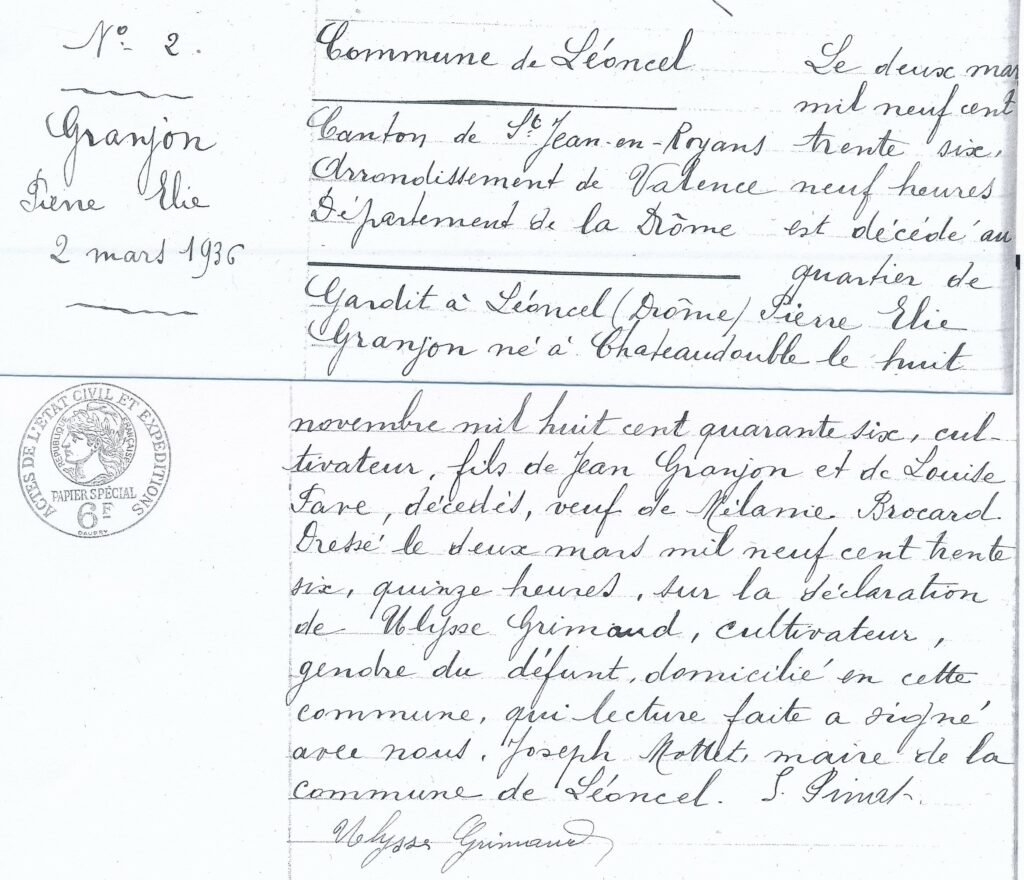 N° 2.
Granjon
Pierre Elie
2 mars 1936
Commune de Léoncel
Canton de St Jean-en-Royans
Arrondissement de Valence
Département de la Drôme
Le deux mars
mil neuf cent
trente six,
neuf heures
est décédé au
quartier de
Gardit à Léoncel (Drôme) Pierre Elie
Granjon né à Chateaudouble le huit
ACTES DE L'ÉTAT CIVIL ET EXPÉDITIONS
RÉPUBLIQUE FRANÇAISE
PAPIER SPÉCIAL
6F
DAUSSY
novembre mil huit cent quarante six, cul-
tivateur, fils de Jean Granjon et de Louise
Fave, décedés, veuf de Mélanie Brocard.
Dressé le deux mars mil neuf cent trente
six, quinze heures, sur la déclaration
de Ulysse Grimaud, cultivateur,
gendre du défunt, domicilié en cette
commune, qui lecture faite a signé
avec nous, Joseph Mottet, maire de la
commune de Léoncel.
Ulysse Grimaud